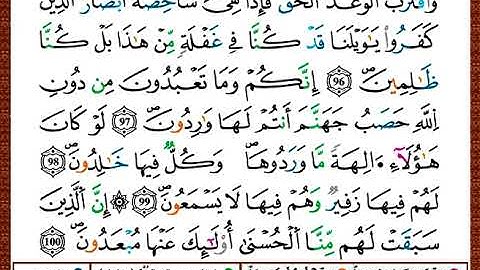 وَاقْتَرَبَ الْوَعْدُ الْحَقُّ فَإِذَا هِىَ شَاخِصَةٌ أَبْصَارُ الَّذِينَ
كَفَرُوا۟ يَاوَيْلَنَا قَدْ كُنَّا فِى غَفْلَةٍ مِّنْ هَاذَا بَلْ كُنَّا
ظَالِمِينَ (96) إِنَّكُمْ وَمَا تَعْبُدُونَ مِن دُونِ
اِ۬للَّهِ حَصَبُ جَهَنَّمَ أَنتُمْ لَهَا وَارِدُونَ (97) لَوْ كَانَ
هَاؤُلَآءِ ءَالِهَةً مَّا وَرَدُوهَا وَكُلٌّ فِيهَا خَالِدُونَ (98)
لَهُمْ فِيهَا زَفِيرٌ وَهُمْ فِيهَا لَا يَسْمَعُونَ (99) ۞ إِنَّ الَّذِينَ
سَبَقَتْ لَهُم مِّنَّا الْحُسْنَىٰ أُوْلَـٰٓئِكَ عَنْهَا مُبْعَدُونَ (100)